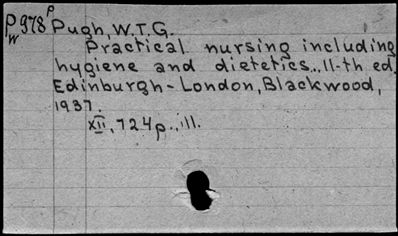 P978 P Pugh, W.T.G.
W
Practical nursing including
hygiene and dietetics.. 11-th ed.
Edinburgh-London, Blackwood,
1937.
XII, 724p., ill.